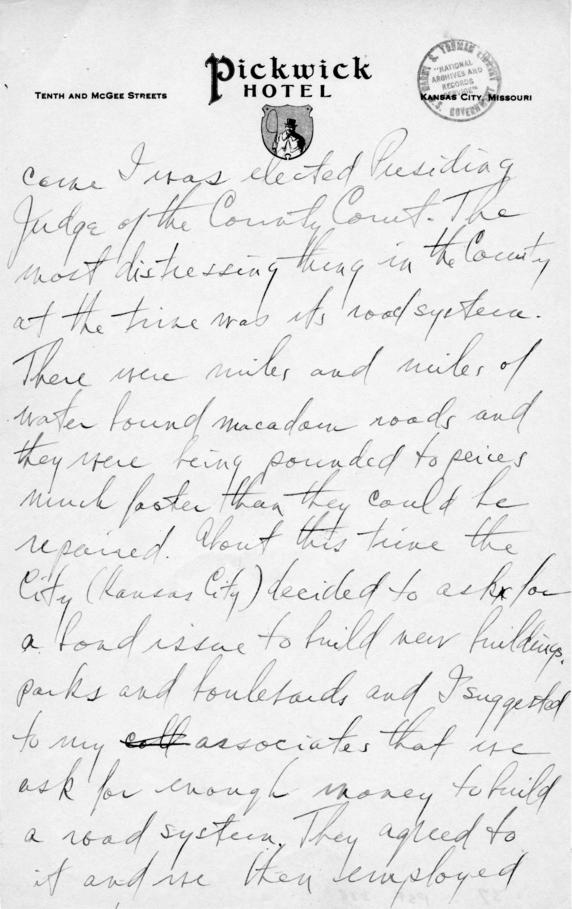 Pickwick
HOTEL
TENTH AND MCGEE STREETS
KANSAS CITY, MISSOURI
HARRY S. TRUMAN LIBRARY
"NATIONAL
ARCHIVES AND
RECORDS
SERVICE"
U.S. GOVERNMENT
came I was elected Presiding
Judge of the County Court. The
most distressing thing in the County
at the time was its road system.
There were miles and miles of
water bound macadam roads and
they were being pounded to peices
much faster than they could be
repaired. About this time the
City (Kansas City) decided to ask for
a bond issue to build new buildings,
parks and boulevards and I suggested
to my coll associates that we
ask for enough money to build
a road system. They agreed to
it and we then employed